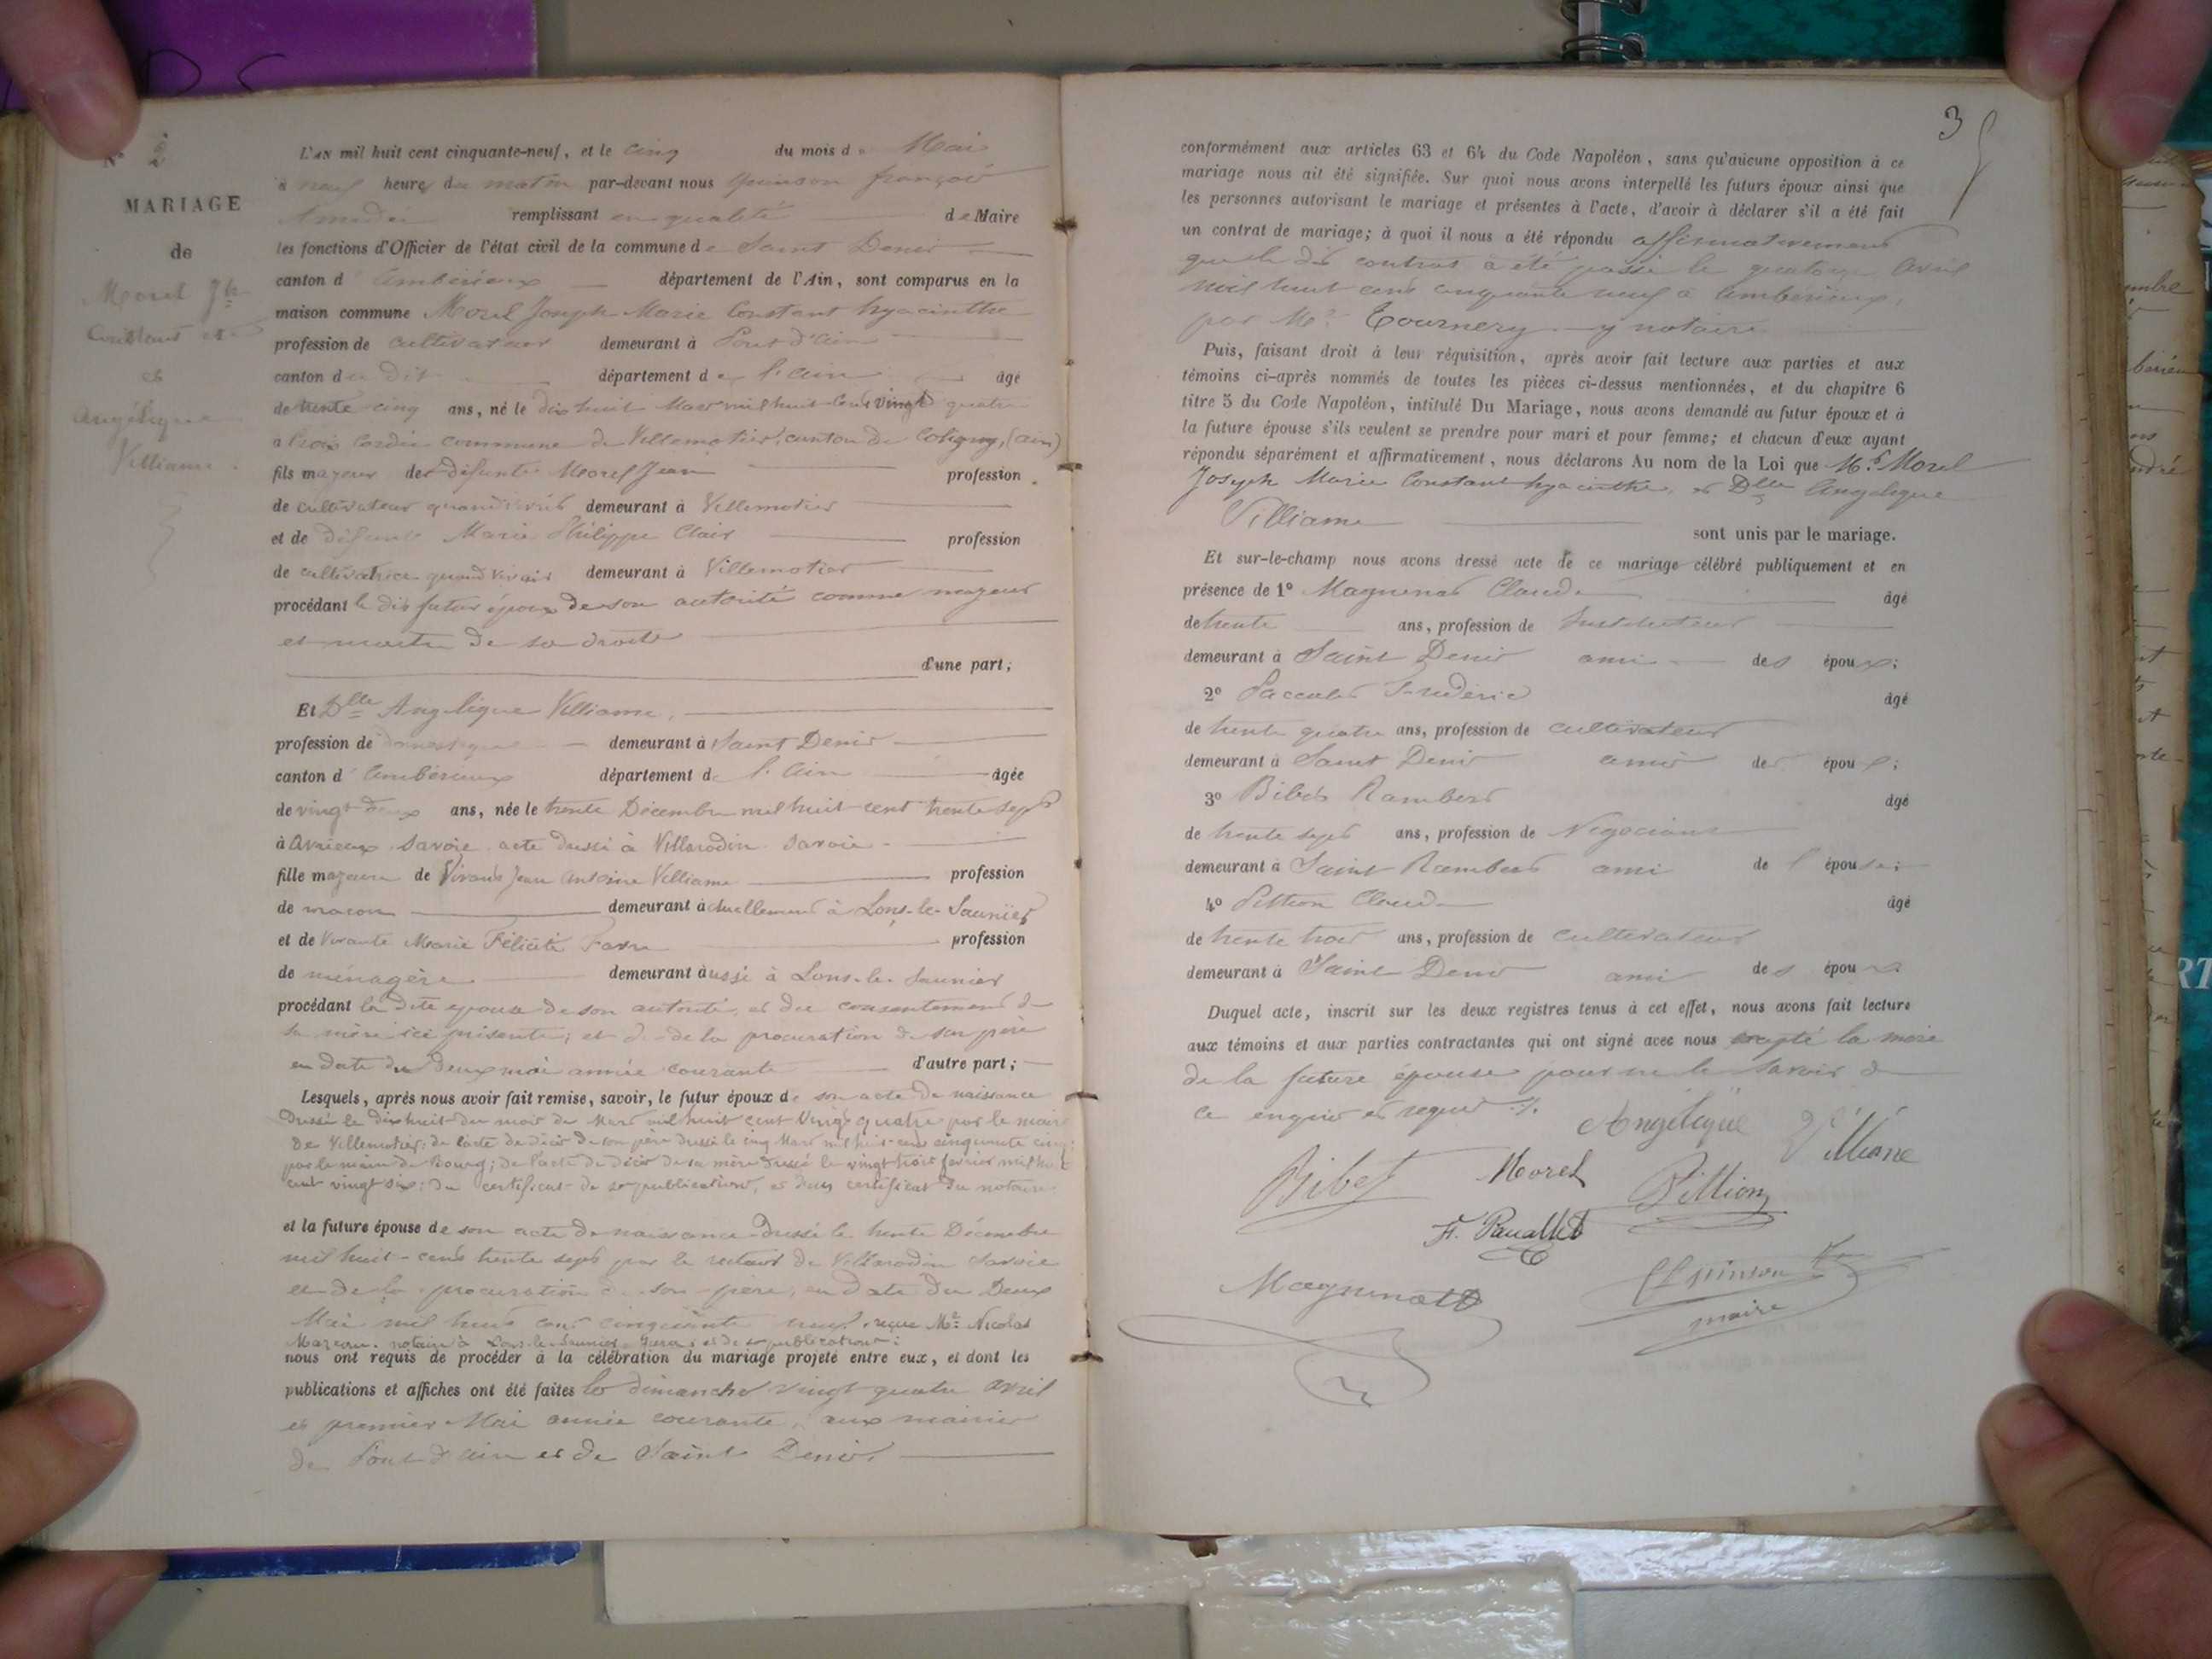 N° 2
MARIAGE
de
Morel Jh
Constant et
et
Angélique
Villiame.
L'AN mil huit cent cinquante-neuf, et le cinq du mois de Mai
à neuf heures du matin par-devant nous Epinson françois
Amédée remplissant en qualité de Maire
les fonctions d'Officier de l'état civil de la commune de Saint Denis
canton d'Ambérieux département de l'Ain, sont comparus en la
maison commune Morel Joseph Marie Constant hyacinthe
profession de cultivateur demeurant à Pont d'ain
canton du dit département de l'ain âgé
de trente cinq ans, né le dix huit Mars mil huit Cent vingt quatre
a commune de Villemotier, canton de Coligny, (ain)
fils majeur de défunt Morel Jean profession
de cultivateur quand vivait demeurant à Villemotier
et de défunte Marie Philippe Clair profession
de cultivatrice quand vivait demeurant à Villemotier
procédant le dit futur époux de son autorité comme majeur
et maitre de ses droits
d'une part;
Et Dlle Angélique Villiame,
profession de domestique demeurant à Saint Denis
canton d'Ambérieux département de l'Ain âgée
de vingt deux ans, née le trente Décembre mil huit cent trente sept
à Avrieux savoie acte dressé à Villarodin savoie
fille majeure de Vivant Jean Antoine Villiame profession
de maçon demeurant actuellement à Lons-le-Saunier
et de Vivante Marie Félicité Favre profession
de ménagère demeurant aussi à Lons-le-Saunier
procédant la dite epouse de son autorité, et du consentement de
sa mère ici présente; et de la procuration de son père
en date du deux mai année courante d'autre part;
Lesquels, après nous avoir fait remise, savoir, le futur époux de son acte de naissance
dressé le dix huit du mois de Mars mil huit cent vingt quatre par le maire
de Villemotier; de l'acte de décès de son père dressé le cinq Mars mil huit cent cinquante cinq
par le maire de Bourg; de l'acte de décès de sa mère dressé le vingt trois février mil huit
cent vingt six; du certificat de publication, et du certificat du notaire
et la future épouse de son acte de naissance dressé le trente Décembre
mil huit-cent trente sept par le recteur de Villarodin Savoie
et de la procuration de son père, en date du Deux
Mai mil huit cent cinquante neuf, reçue Me Nicolas
notaire à Lons-le-Saunier Jura, et de publication;
nous ont requis de procéder à la célébration du mariage projeté entre eux, et dont les
publications et affiches ont été faites les dimanches vingt quatre avril
et premier Mai année courante, aux mairies
de Pont d'ain et de Saint Denis.
3
conformément aux articles 63 et 64 du Code Napoléon, sans qu'aucune opposition à ce
mariage nous ait été signifiée. Sur quoi nous avons interpellé les futurs époux ainsi que
les personnes autorisant le mariage et présentes à l'acte, d'avoir à déclarer s'il a été fait
un contrat de mariage; à quoi il nous a été répondu affirmativement
que le dit contrat a été passé le quatorze Avril
mil huit cent cinquante neuf à Ambérieux,
par Me Tournery notaire
Puis, faisant droit à leur réquisition, après avoir fait lecture aux parties et aux
témoins ci-après nommés de toutes les pièces ci-dessus mentionnées, et du chapitre 6
titre 5 du Code Napoléon, intitulé Du Mariage, nous avons demandé au futur époux et à
la future épouse s'ils veulent se prendre pour mari et pour femme; et chacun d'eux ayant
répondu séparément et affirmativement, nous déclarons Au nom de la Loi que Mr Morel
Joseph Marie Constant hyacinthe, et Dlle Angelique
Villiame
sont unis par le mariage.
Et sur-le-champ nous avons dressé acte de ce mariage célébré publiquement et en
présence de 1° Magnenat Claude âgé
de trente ans, profession de Instituteur
demeurant à Saint Denis ami des époux;
2° Frédéric âgé
de trente quatre ans, profession de cultivateur
demeurant à Saint Denis amis des époux;
3° Bibet Rambert âgé
de trente sept ans, profession de Négociant
demeurant à Saint Rambert ami de l'épouse;
4° Pittion Claude âgé
de trente trois ans, profession de cultivateur
demeurant à Saint Denis ami des époux
Duquel acte, inscrit sur les deux registres tenus à cet effet, nous avons fait lecture
aux témoins et aux parties contractantes qui ont signé avec nous excepté la mère
de la future épouse pour ne le savoir de
ce enquis et requis ./.
Angélique Villiame
Bibet Morel Pittion
Magnenat Epinson
maire